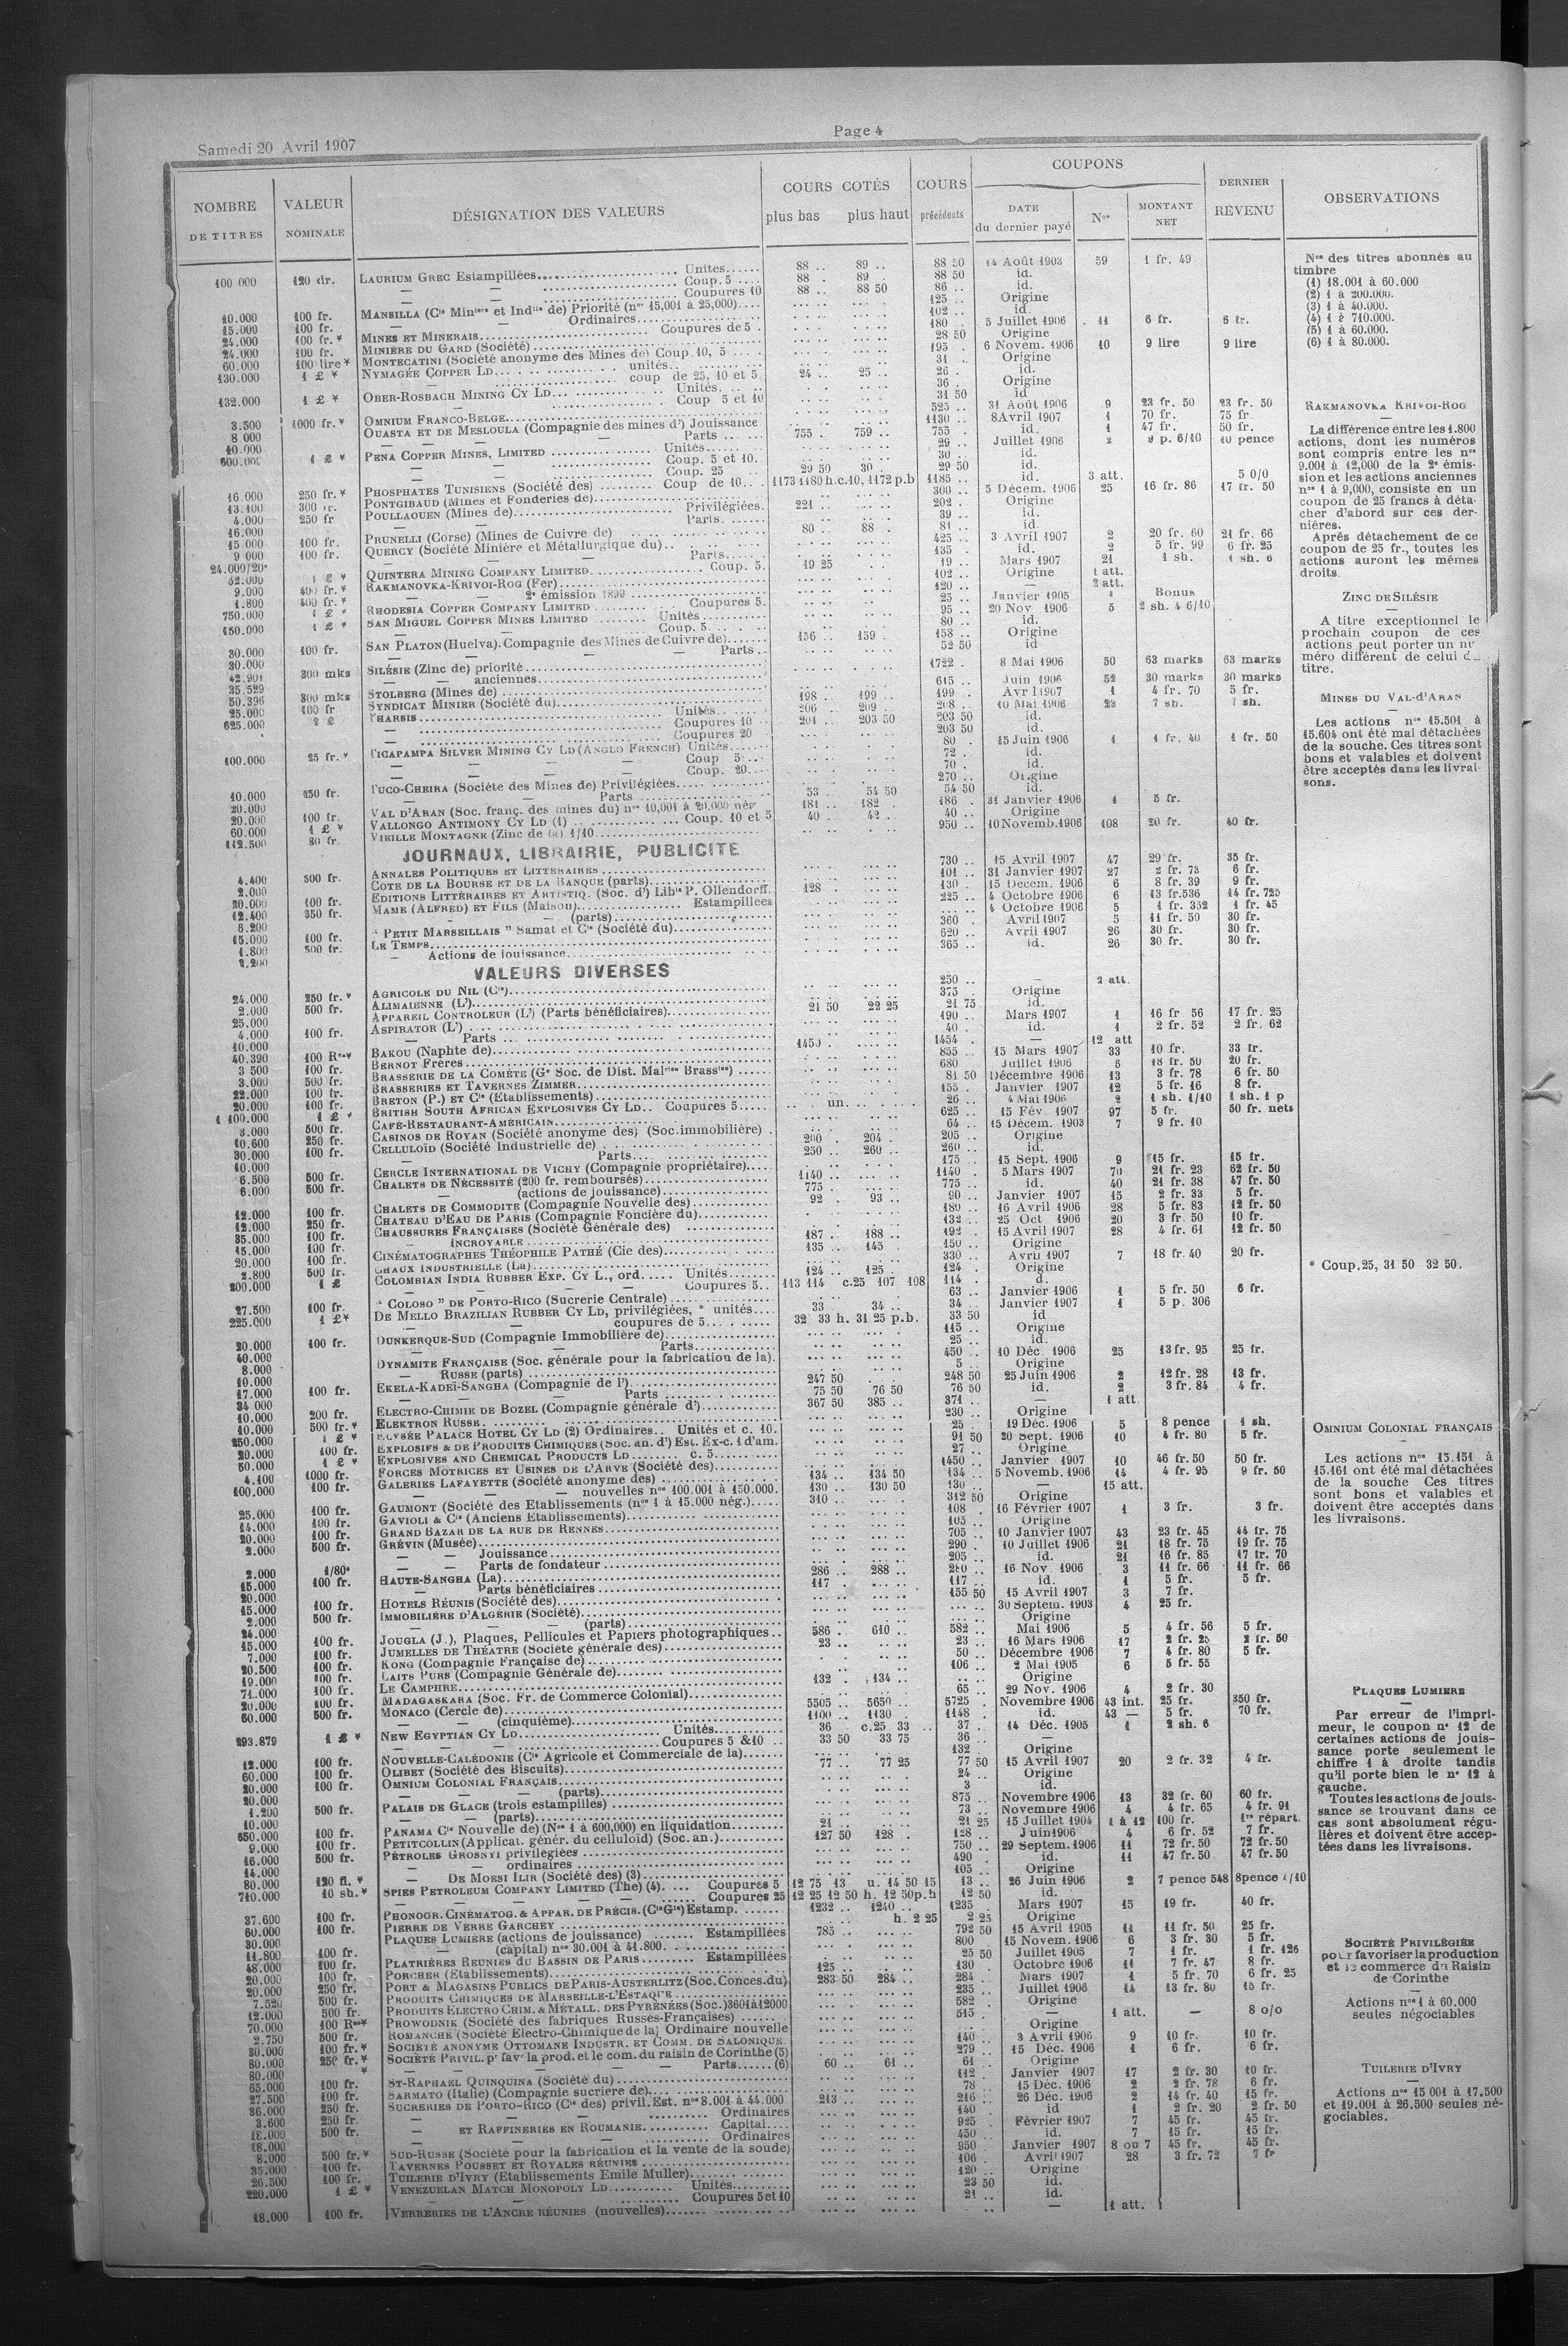 Page 4
Samedi 20 Avril 1907
NOMBRE DE TITRES VALEUR NOMINALE DÉSIGNATION DES VALEURS COURS COTÉS plus bas plus haut COURS précédents COUPONS DATE du dernier payé Nos MONTANT NET DERNIER REVENU OBSERVATIONS
100 000 120 dr. LAURIUM GREC Estampillées Unités 88 .. 89 .. 88 50 14 Août 1903 59 1 fr. 49
— — Coup. 5 88 . 89 . 88 50 id.
— — Coupures 10 88 .. 88 50 86 .. id.
10.000 100 fr. MANSILLA (Cie Minière et Indlle de) Priorité (nos 15,001 à 25,000) 125 .. Origine
15.000 100 fr. — — Ordinaires 102 .. id.
24.000 100 fr. * MINES ET MINERAIS Coupures de 5 180 .. 5 Juillet 1906 11 6 fr. 6 fr.
24.000 100 fr. MINIÈRE DU GARD (Société) 28 50 Origine
60.000 100 lire * MONTECATINI (Société anonyme des Mines de) Coup. 10, 5 195 . 6 Novem. 1906 10 9 lire 9 lire
130.000 1 £ * NYMAGÉE COPPER LD unités 31 .. Origine
— coup de 25, 10 et 5 24 .. 25 .. 26 . id.
132.000 1 £ * OBER-ROSBACH MINING CY LD Unités 36 . Origine
— Coup 5 et 10 31 50 id
3.500 1000 fr. * OMNIUM FRANCO-BELGE 525 .. 31 Août 1906 9 23 fr. 50 23 fr. 50
8 000 OUASTA ET DE MESLOULA (Compagnie des mines d') Jouissance 1130 .. 8 Avril 1907 1 70 fr. 75 fr.
10.000 — — Parts 755 . 759 .. 755 . id. 1 47 fr. 50 fr.
600.000 1 £ * PENA COPPER MINES, LIMITED Unités 29 .. Juillet 1906 2 9 p. 6/10 10 pence
— — Coup. 5 et 10. 30 .. id.
— — Coup. 25 29 50 30 . 29 50 id.
16.000 250 fr. * PHOSPHATES TUNISIENS (Société des) Coup de 10 1173 1180 h.c.10, 1172 p.b 1185 .. id. 3 att. 5 0/0
13.100 300 fr. PONTGIBAUD (Mines et Fonderies de) 300 .. 5 Décem. 1906 25 16 fr. 86 17 fr. 50
4.000 250 fr POULLAOUEN (Mines de) Privilégiées. 221 .. 202 . Origine
16.000 — Parts. 39 .. id.
15 000 100 fr. PRUNELLI (Corse) (Mines de Cuivre de) 80 .. 88 . 81 .. id.
9 000 100 fr. QUERCY (Société Minière et Métallurgique du) 425 .. 3 Avril 1907 2 20 fr. 60 21 fr. 66
24.000/20e — — Parts 135 . id. 2 5 fr. 99 6 fr. 25
52.000 1 £ * QUINTERA MINING COMPANY LIMITED Coup. 5. 19 25 19 .. Mars 1907 21 1 sh. 1 sh. 6
9.000 400 fr. * RAKMANOVKA-KRIVOI-ROG (Fer) 102 .. Origine 1 att.
1.800 400 fr. * — — 2e émission 1899 120 .. — 2 att.
750.000 1 £ * RHODESIA COPPER COMPANY LIMITED Coupures 5. 25 .. Janvier 1905 Bonus
150.000 1 £ * SAN MIGUEL COPPER MINES LIMITED Unités 95 .. 20 Nov 1906 5 2 sh. 4 6/10
— — Coup. 5 80 .. id.
30.000 100 fr. SAN PLATON (Huelva). Compagnie des Mines de Cuivre de) 156 .. 159 . 158 .. Origine
30.000 — — Parts 52 50 id
42.901 300 mks SILÉSIE (Zinc de) priorité 1722 . 8 Mai 1906 50 63 marks 63 marks
35.529 — — anciennes 615 .. Juin 1906 52 30 marks 30 marks
50.396 300 mks STOLBERG (Mines de) 198 .. 199 .. 199 .. Avril 1907 1 4 fr. 70 5 fr.
25.000 100 fr SYNDICAT MINIER (Société du) 206 .. 209 .. 208 .. 10 Mai 1906 23 7 sh. 7 sh.
625.000 2 £ THARSIS Unités 201 .. 203 50 203 50 id.
— Coupures 10 203 50 id.
— Coupures 20 80 . 15 Juin 1906 1 1 fr. 40 1 fr. 50
100.000 25 fr. * TICAPAMPA SILVER MINING CY LD (ANGLO FRENCH) Unités 72 . id.
— — Coup 5 70 . id.
— — Coup. 20 270 .. Origine
10.000 250 fr. TUCO-CHEIRA (Société des Mines de) Privilégiées 53 . 54 50 54 50 id.
20.000 — — Parts 181 .. 182 . 186 .. 31 Janvier 1906 1 5 fr.
20.000 100 fr. VAL D'ARAN (Soc. franç. des mines du) nos 10,001 à 20.000 nég 40 .. 42 . 40 .. Origine
60.000 1 £ * VALLONGO ANTIMONY CY LD (1) Coup. 10 et 5
112.500 80 fr. VIEILLE MONTAGNE (Zinc de la) 1/10 950 .. 10 Novemb. 1906 108 20 fr. 40 fr.
JOURNAUX, LIBRAIRIE, PUBLICITÉ
4.400 500 fr. ANNALES POLITIQUES ET LITTÉRAIRES 730 .. 15 Avril 1907 47 29 fr. 35 fr.
2.000 COTE DE LA BOURSE ET DE LA BANQUE (parts) 101 .. 31 Janvier 1907 27 2 fr. 73 6 fr.
20.000 100 fr. EDITIONS LITTÉRAIRES ET ARTISTIQ. (Soc. d') Libie P. Ollendorff. 128 . 130 .. 15 Decem. 1906 6 8 fr. 39 9 fr.
12.400 350 fr. MAME (ALFRED) ET FILS (Maison) Estampillées 225 .. 4 Octobre 1906 6 13 fr.536 14 fr. 725
6.200 — — (parts) 4 Octobre 1906 5 1 fr. 352 1 fr. 45
15.000 100 fr. " PETIT MARSEILLAIS " Samat et Cie (Société du) 360 . Avril 1907 5 11 fr. 50 30 fr.
1.800 500 fr. LE TEMPS 620 .. Avril 1907 26 30 fr. 30 fr.
2.200 — Actions de jouissance 365 .. id. 26 30 fr. 30 fr.
VALEURS DIVERSES
24.000 250 fr. * AGRICOLE DU NIL (Cie) 250 .. — 2 att.
2.000 500 fr. ALIMAIENNE (L') 375 .. Origine
25.000 APPAREIL CONTROLEUR (L') (Parts bénéficiaires) 21 50 22 25 21 75 id.
4.000 100 fr. ASPIRATOR (L') 190 .. Mars 1907 1 16 fr 56 17 fr. 25
10.000 — Parts 40 . id. 1 2 fr. 52 2 fr. 62
40.390 100 Rles* BAKOU (Naphte de) 1450 .. 1454 .. — 12 att
3 500 100 fr. BERNOT FRÈRES 855 .. 15 Mars 1907 33 10 fr. 33 fr.
3.000 500 fr. BRASSERIE DE LA COMÈTE (Ge Soc. de Dist. Malries Brassies) 680 . Juillet 1906 6 18 fr. 50 20 fr.
22.000 100 fr. BRASSERIES ET TAVERNES ZIMMER 81 50 Décembre 1906 13 3 fr. 78 6 fr. 50
20.000 100 fr. BRETON (P.) ET Cie (Etablissements) 155 . Janvier 1907 12 5 fr. 16 8 fr.
1 100.000 1 £ * BRITISH SOUTH AFRICAN EXPLOSIVES CY LD Coupures 5 un. 26 .. 4 Mai 1906 2 1 sh. 1/10 1 sh. 1 p
3.000 500 fr. CAFÉ-RESTAURANT-AMÉRICAIN 625 .. 15 Fév. 1907 97 5 fr. 50 fr. nets
10.600 250 fr. CASINOS DE ROYAN (Société anonyme des) (Soc.immobilière) 64 .. 15 Décem. 1903 7 9 fr. 10
30.000 100 fr. CELLULOÏD (Société Industrielle de) 200 . 204 . 205 .. Origine
10.000 — Parts 250 .. 260 .. 260 .. id.
6.500 500 fr. CERCLE INTERNATIONAL DE VICHY (Compagnie propriétaire) 175 .. 15 Sept. 1906 9 15 fr. 15 fr.
6.000 500 fr. CHALETS DE NÉCESSITÉ (200 fr. remboursés) 1140 .. 1140 . 5 Mars 1907 70 21 fr. 23 62 fr. 50
— (actions de jouissance) 775 . 775 .. id. 40 21 fr. 38 47 fr. 50
12.000 100 fr. CHALETS DE COMMODITÉ (Compagnie Nouvelle des) 92 . 93 .. 90 .. Janvier 1907 15 2 fr. 33 5 fr.
12.000 250 fr. CHATEAU D'EAU DE PARIS (Compagnie Foncière du) 180 .. 16 Avril 1906 28 5 fr. 83 12 fr. 50
35.000 100 fr. CHAUSSURES FRANÇAISES (Société Générale des) 132 .. 25 Oct 1906 20 3 fr. 50 10 fr.
15.000 100 fr. — INCROYABLE 187 . 188 .. 192 .. 15 Avril 1907 28 4 fr. 61 12 fr. 50
20.000 100 fr. CINÉMATOGRAPHES THÉOPHILE PATHÉ (Cie des) 135 .. 145 . 150 .. Origine
2.800 500 fr. CHAUX INDUSTRIELLE (La) 330 .. Avril 1907 7 18 fr. 40 20 fr.
200.000 1 £ COLOMBIAN INDIA RUBBER EXP. CY L., ord. Unités 124 .. 125 . 124 . Origine
— Coupures 5 113 114 c.25 107 108 114 .
27.500 100 fr. " COLOSO " DE PORTO-RICO (Sucrerie Centrale) 63 .. Janvier 1906 1 5 fr. 50 6 fr.
225.000 1 £ * DE MELLO BRAZILIAN RUBBER CY LD, privilégiées, * unités 33 34 .. 34 .. Janvier 1907 1 5 p. 306
— coupures de 5 32 33 h. 31 25 p.b. 33 50 id
20.000 100 fr. DUNKERQUE-SUD (Compagnie Immobilière de) 115 .. Origine
40.000 — — Parts 25 .. id.
8.000 DYNAMITE FRANÇAISE (Soc. générale pour la fabrication de la). 450 .. 10 Déc 1906 25 13 fr. 95 25 fr.
10.000 — RUSSE (parts) 5 .. Origine
17.000 100 fr. EKELA-KADEÏ-SANGHA (Compagnie de l') 247 50 248 50 25 Juin 1906 2 12 fr. 28 13 fr.
34 000 — — Parts 75 50 76 50 76 50 id. 2 3 fr. 84 4 fr.
10.000 200 fr. ELECTRO-CHIMIE DE BOZEL (Compagnie générale d') 367 50 385 .. 371 .. — 1 att
10.000 500 fr. * ELEKTRON RUSSE 230 .. Origine
250.000 1 £ * ELYSÉE PALACE HOTEL CY LD (2) Ordinaires Unités et c. 10. 25 .. 19 Déc. 1906 5 8 pence 1 sh.
20.000 100 fr. EXPLOSIFS & DE PRODUITS CHIMIQUES (Soc. an. d') Est. Ex-c. 1 d'am. 91 50 20 Sept. 1906 10 4 fr. 80 5 fr.
50.000 1 £ * EXPLOSIVES AND CHEMICAL PRODUCTS LD c. 5 27 .. Origine
4.100 1000 fr. FORCES MOTRICES ET USINES DE L'ARVE (Société des) 1450 .. Janvier 1907 10 46 fr. 50 50 fr.
100.000 100 fr. GALERIES LAFAYETTE (Société anonyme des) 134 .. 134 50 134 .. 5 Novemb. 1906 14 4 fr. 95 9 fr. 50
— — nouvelles nos 100.001 à 150.000. 130 .. 130 50 130 .. — 15 att.
25.000 100 fr. GAUMONT (Société des Etablissements (nos 1 à 15.000 nég.) 310 .. 312 50 Origine
14.000 100 fr. GAVIOLI & Cie (Anciens Etablissements) 108 . 16 Février 1907 1 3 fr. 3 fr.
20.000 100 fr. GRAND BAZAR DE LA RUE DE RENNES 105 .. Origine
2.000 500 fr. GRÉVIN (Musée) 705 .. 10 Janvier 1907 43 23 fr. 45 44 fr. 75
— — Jouissance 290 . 10 Juillet 1906 21 18 fr. 75 19 fr. 75
2.000 1/80e — — Parts de fondateur 205 .. id. 21 16 fr. 85 17 fr. 70
15.000 100 fr. HAUTE-SANGHA (La) 286 .. 288 .. 280 .. 16 Nov. 1906 3 11 fr. 66 11 fr. 66
20.000 — Parts bénéficiaires 117 . 117 .. id. 1 5 fr. 5 fr.
15.000 100 fr. HOTELS RÉUNIS (Société des) 155 50 15 Avril 1907 3 7 fr.
2.000 500 fr. IMMOBILIÈRE D'ALGÉRIE (Société) 30 Septem. 1903 4 25 fr.
24.000 — — (parts) Origine
15.000 100 fr. JOUGLA (J.), Plaques, Pellicules et Papiers photographiques 586 .. 610 .. 582 .. Mai 1906 5 4 fr. 56 5 fr.
7.000 100 fr. JUMELLES DE THÉATRE (Société générale des) 23 .. 23 .. 16 Mars 1906 17 2 fr. 25 2 fr. 50
20.500 100 fr. KONG (Compagnie Française de) 50 .. Décembre 1906 7 4 fr. 80 5 fr.
19.000 100 fr. LAITS PURS (Compagnie Générale de) 106 .. 2 Mai 1905 6 5 fr. 55
74.000 100 fr. LE CAMPHRE 132 . 134 .. Origine
20.000 100 fr. MADAGASKARA (Soc. Fr. de Commerce Colonial) 65 .. 29 Nov. 1906 4 2 fr. 30
60.000 500 fr. MONACO (Cercle de) 5505 .. 5650 .. 5725 . Novembre 1906 43 int. 25 fr. 350 fr.
— — (cinquième) 1100 .. 1130 . 1148 . id. 43 — 5 fr. 70 fr.
293.879 1 £ * NEW EGYPTIAN CY LD Unités 36 c.25 33 .. 37 . 14 Déc. 1905 1 2 sh. 6
— — Coupures 5 & 10 33 50 33 75 36 .. —
12.000 100 fr. NOUVELLE-CALÉDONIE (Cie Agricole et Commerciale de la) 132 .. Origine
60.000 100 fr. OLIBET (Société des Biscuits) 77 .. 77 25 77 50 15 Avril 1907 20 2 fr. 32 4 fr.
20.000 100 fr. OMNIUM COLONIAL FRANÇAIS 24 .. Origine
20.000 — — (parts) 3 id.
1.200 500 fr. PALAIS DE GLACE (trois estampilles) 875 .. Novembre 1906 13 32 fr. 60 60 fr.
10.000 — (parts) 73 .. Novembre 1906 4 4 fr. 65 4 fr. 91
550.000 100 fr. PANAMA Cie Nouvelle de) (Nos 1 à 600,000) en liquidation 21 .. 21 25 15 Juillet 1904 1 à 12 100 fr. 1re répart.
9.000 100 fr. PETITCOLLIN (Applicat. génér. du celluloïd) (Soc. an.) 127 50 128 . 128 .. Juin 1906 4 6 fr. 52 7 fr.
16.000 500 fr. PÉTROLES GROSNYI privilégiées 750 .. 29 Septem. 1906 11 72 fr. 50 72 fr. 50
14.000 — — ordinaires 490 . id. 11 47 fr. 50 47 fr. 50
80.000 120 fl. * — DE MOESI ILIR (Société des) (3) 105 .. Origine
710.000 10 sh. * SPIES PETROLEUM COMPANY LIMITED (The) (4) Coupures 5 12 75 13 u. 14 50 15 13 .. 26 Juin 1906 2 7 pence 548 8 pence 1/10
— — Coupures 25 12 25 12 50 h. 12 50 p.h 12 50 id.
37.600 100 fr. PHONOGR. CINÉMATOG. & APPAR. DE PRÉCIS. (Cie Gle) Estamp. 1232 .. 1240 .. 1235 . Mars 1907 15 19 fr. 40 fr.
60.000 100 fr. PIERRE DE VERRE GARCHEY h. 2 25 2 25 Origine
30.000 PLAQUES LUMIÈRE (actions de jouissance) Estampillées 785 .. 792 50 15 Avril 1905 11 11 fr. 50 25 fr.
11.800 100 fr. — (capital) nos 30.001 à 41.800. 800 15 Novem. 1906 6 3 fr. 30 5 fr.
48.000 100 fr. PLATRIÈRES RÉUNIES DU BASSIN DE PARIS Estampillées 25 50 Juillet 1905 7 1 fr. 1 fr. 125
20.000 100 fr. PORCHER (Etablissements) 125 .. 130 . Octobre 1906 11 7 fr. 47 8 fr.
20.000 250 fr. PORT & MAGASINS PUBLICS DE PARIS-AUSTERLITZ (Soc. Conces. du) 283 50 284 .. 284 .. Mars 1907 1 5 fr. 70 6 fr. 25
7.520 500 fr. PRODUITS CHIMIQUES DE MARSEILLE-L'ESTAQUE 235 .. Juillet 1906 14 13 fr. 80 15 fr.
12.000 500 fr. PRODUITS ELECTRO CHIM. & MÉTALL. DES PYRÉNÉES (Soc.) 3601 à 12000 582 . Origine
70.000 100 Rles* PROWODNIK (Société des fabriques Russes-Françaises) 515 .. — 1 att. — 8 o/o
2.750 500 fr. ROMANCHE (Société Electro-Chimique de la) Ordinaire nouvelle Origine
30.000 100 fr. * SOCIÉTÉ ANONYME OTTOMANE INDUSTR. ET COMM. DE SALONIQUE 140 .. 3 Avril 1906 9 10 fr. 10 fr.
80.000 250 fr. * SOCIÉTÉ PRIVIL. pr favr la prod. et le com. du raisin de Corinthe (5) 279 .. 15 Déc. 1906 1 6 fr. 6 fr.
80.000 * — — Parts (6) 60 .. 61 .. 61 .. Origine
65.000 100 fr. ST-RAPHAEL QUINQUINA (Société du) 112 .. Janvier 1907 17 2 fr. 30 10 fr.
27.500 100 fr. SARMATO (Italie) (Compagnie sucrière de) 78 .. 15 Déc. 1906 2 2 fr. 78 6 fr.
36.000 250 fr. SUCRERIES DE PORTO-RICO (Cie des) privil. Est. nos 8.001 à 44.000 213 .. 216 .. 26 Déc. 1906 2 14 fr. 40 15 fr.
3.600 250 fr. — — Ordinaires 140 . id 1 2 fr. 20 2 fr. 50
18.000 500 fr. — ET RAFFINERIES EN ROUMANIE Capital 925 Février 1907 7 45 fr. 45 fr.
18.000 — — Ordinaires 450 .. id. 7 15 fr. 15 fr.
8.000 500 fr. * SUD-RUSSE (Société pour la fabrication et la vente de la soude) 950 . Janvier 1907 8 ou 7 45 fr. 45 fr.
35.000 100 fr. TAVERNES POUSSET ET ROYALES RÉUNIES 106 .. Avril 1907 28 3 fr. 72 7 fr
26.500 100 fr. TUILERIE D'IVRY (Etablissements Emile Muller) 120 .. Origine
220.000 1 £ * VENEZUELAN MATCH MONOPOLY LD Unités 23 50 id.
— — Coupures 5 et 10 21 .. id.
18.000 100 fr. VERRERIES DE L'ANCRE RÉUNIES (nouvelles) — 1 att.
Nos des titres abonnés au
timbre
(1) 18.001 à 60.000
(2) 1 à 200.000.
(3) 1 à 40.000.
(4) 1 à 710.000.
(5) 1 à 60.000.
(6) 1 à 80.000.
RAKMANOVKA KRIVOI-ROG
La différence entre les 1.800
actions, dont les numéros
sont compris entre les nos
9.001 à 12,000 de la 2e émis-
sion et les actions anciennes
nos 1 à 9,000, consiste en un
coupon de 25 francs à déta-
cher d'abord sur ces der-
nières.
Après détachement de ce
coupon de 25 fr., toutes les
actions auront les mêmes
droits.
ZINC DE SILÉSIE
A titre exceptionnel le
prochain coupon de ces
actions peut porter un nu
méro différent de celui d
titre.
MINES DU VAL-d'ARAN
Les actions nos 15.501 à
15.604 ont été mal détachées
de la souche. Ces titres sont
bons et valables et doivent
être acceptés dans les livrai-
sons.
* Coup. 25, 31 50 32 50.
OMNIUM COLONIAL FRANÇAIS
Les actions nos 15.151 à
15.161 ont été mal détachées
de la souche Ces titres
sont bons et valables et
doivent être acceptés dans
les livraisons.
PLAQUES LUMIERE
Par erreur de l'impri-
meur, le coupon no 12 de
certaines actions de jouis-
sance porte seulement le
chiffre 1 à droite tandis
qu'il porte bien le no 12 à
gauche.
Toutes les actions de jouis-
sance se trouvant dans ce
cas sont absolument régu-
lières et doivent être accep-
tées dans les livraisons.
SOCIÉTÉ PRIVILÉGIÉE
pour favoriser la production
et le commerce du Raisin
de Corinthe
Actions nos 1 à 60.000
seules négociables
TUILERIE D'IVRY
Actions nos 15 001 à 17.500
et 19.001 à 26.500 seules né-
gociables.